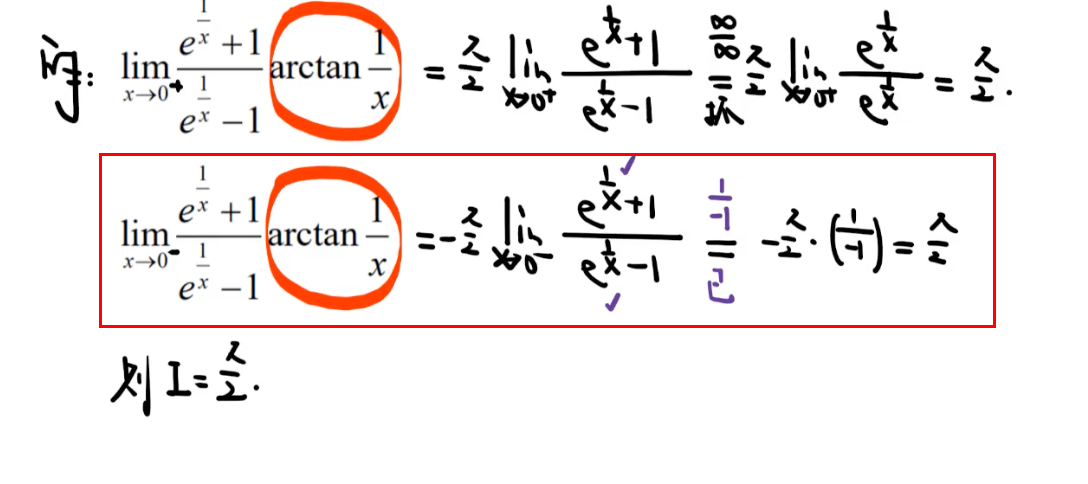 问: lim_{x→0⁺} (e^{1/x}+1)/(e^{1/x}−1) arctan 1/x = π/2 lim_{x→0⁺} (e^{1/x}+1)/(e^{1/x}−1) =^{∞/∞} π/2 lim_{x→0⁺} e^{1/x}/e^{1/x} = π/2.
lim_{x→0⁻} (e^{1/x}+1)/(e^{1/x}−1) arctan 1/x = −π/2 lim_{x→0⁻} (e^{1/x}+1)/(e^{1/x}−1) =^{1/−1} −π/2·(1/−1) = π/2
则 I=π/2.